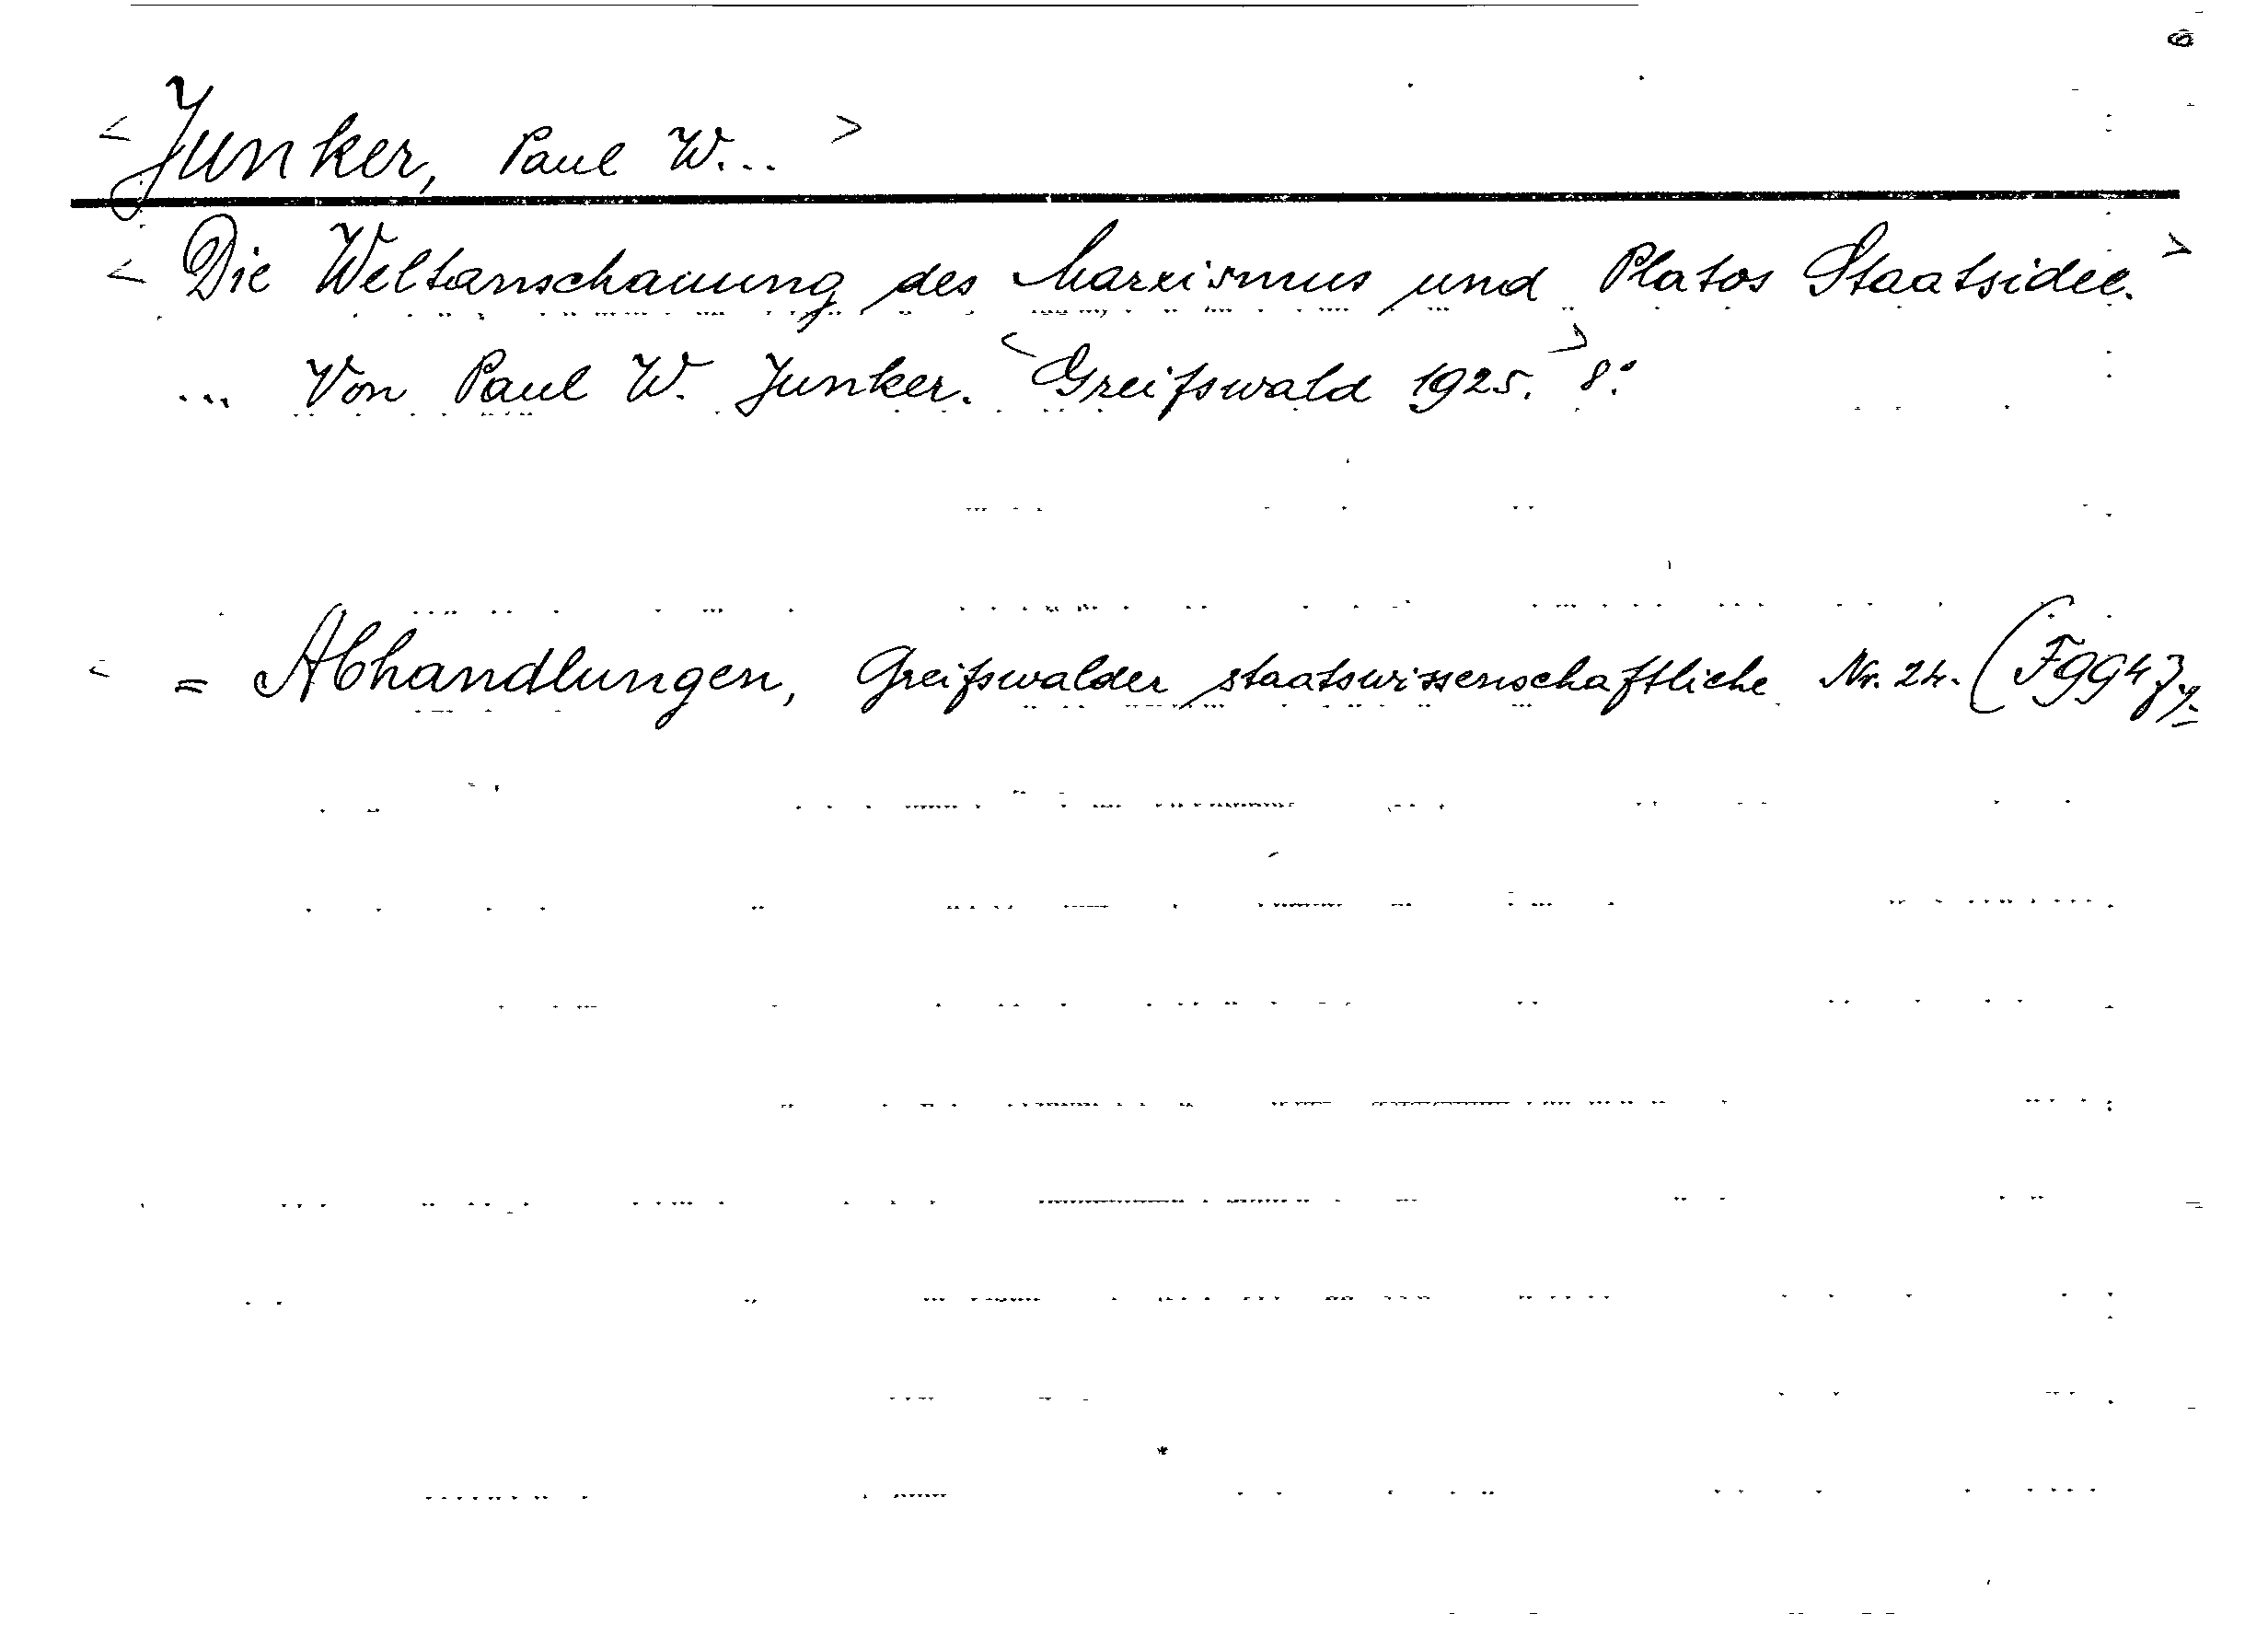 <Junker, Paul W...>
< Die Weltanschauung des Marxismus und Platos Staatsidee.>
... Von Paul W. Junker. <Greifswald 1925.> 8°.
< = Abhandlungen, Greifswalder staatswissenschaftliche Nr. 24.